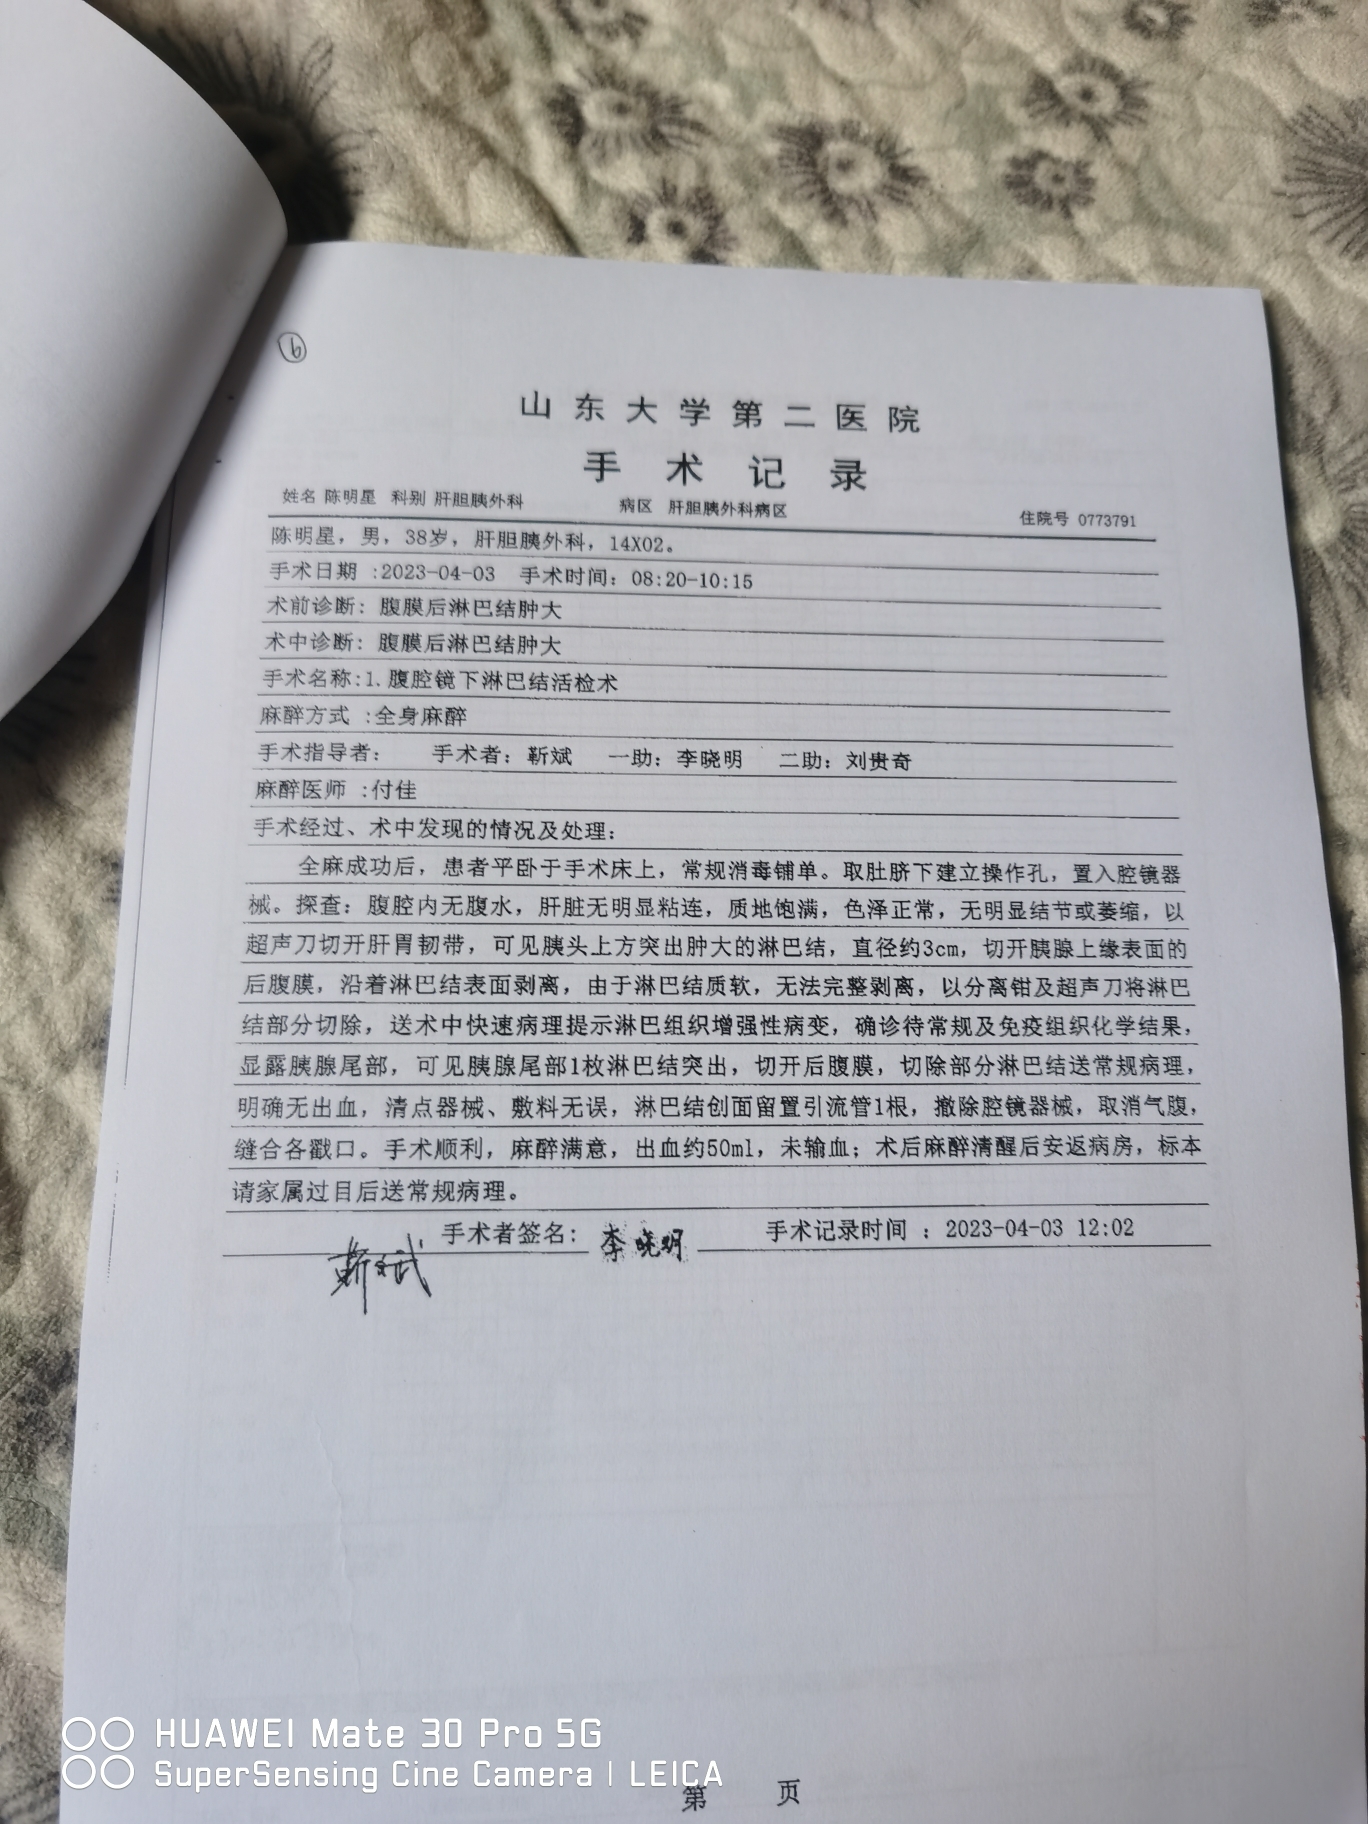 6
山东大学第二医院
手术记录
姓名 陈明星 科别 肝胆胰外科 病区 肝胆胰外科病区 住院号 0773791
陈明星，男，38岁，肝胆胰外科，14X02。
手术日期 :2023-04-03 手术时间：08:20-10:15
术前诊断：腹膜后淋巴结肿大
术中诊断：腹膜后淋巴结肿大
手术名称:1.腹腔镜下淋巴结活检术
麻醉方式 :全身麻醉
手术指导者： 手术者：靳斌 一助：李晓明 二助：刘贵奇
麻醉医师 :付佳
手术经过、术中发现的情况及处理：
全麻成功后，患者平卧于手术床上，常规消毒铺单。取肚脐下建立操作孔，置入腔镜器
械。探查：腹腔内无腹水，肝脏无明显粘连，质地饱满，色泽正常，无明显结节或萎缩，以
超声刀切开肝胃韧带，可见胰头上方突出肿大的淋巴结，直径约3cm，切开胰腺上缘表面的
后腹膜，沿着淋巴结表面剥离，由于淋巴结质软，无法完整剥离，以分离钳及超声刀将淋巴
结部分切除，送术中快速病理提示淋巴组织增强性病变，确诊待常规及免疫组织化学结果，
显露胰腺尾部，可见胰腺尾部1枚淋巴结突出，切开后腹膜，切除部分淋巴结送常规病理，
明确无出血，清点器械、敷料无误，淋巴结创面留置引流管1根，撤除腔镜器械，取消气腹，
缝合各戳口。手术顺利，麻醉满意，出血约50ml，未输血；术后麻醉清醒后安返病房，标本
请家属过目后送常规病理。
手术者签名： 李晓明 手术记录时间 ：2023-04-03 12:02
第 页
HUAWEI Mate 30 Pro 5G
SuperSensing Cine Camera | LEICA